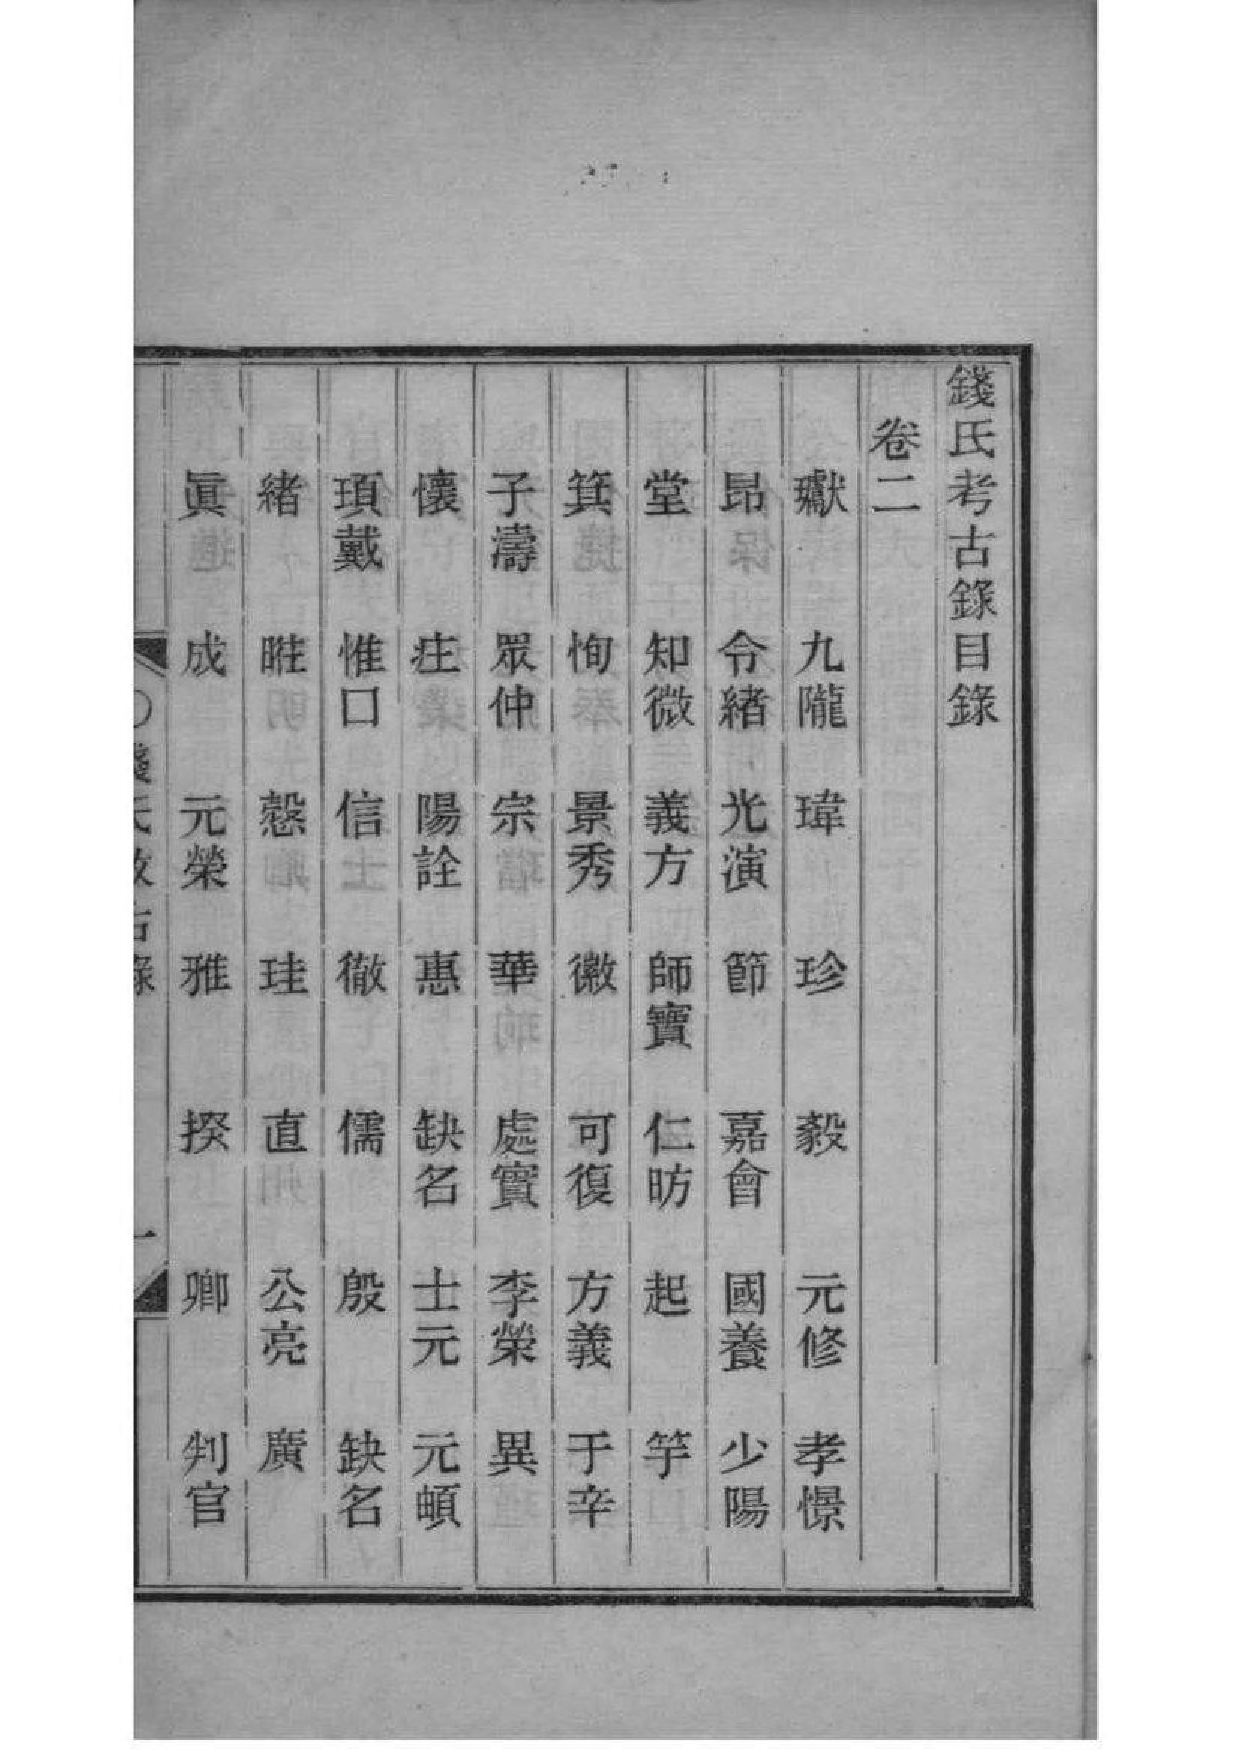 錢氏考古錄目錄
卷二
瓛 九隴 瑋 珍 毅 元修 孝憬
昂 令緒 光演 節 嘉會 國養 少陽
堂 知微 義方 師寶 仁昉 起 竽
箕 恂 景秀 徽 可復 方義 于辛
子濤 眾仲 宗 華 處實 李榮 異
懷 庄 陽詮 惠 缺名 士元 元頔
頊戴 惟口 信 徹 儒 殷 缺名
緒 暀 慤 珪 直 公亮 廣
眞 成 元榮 雅 揆 卿 判官